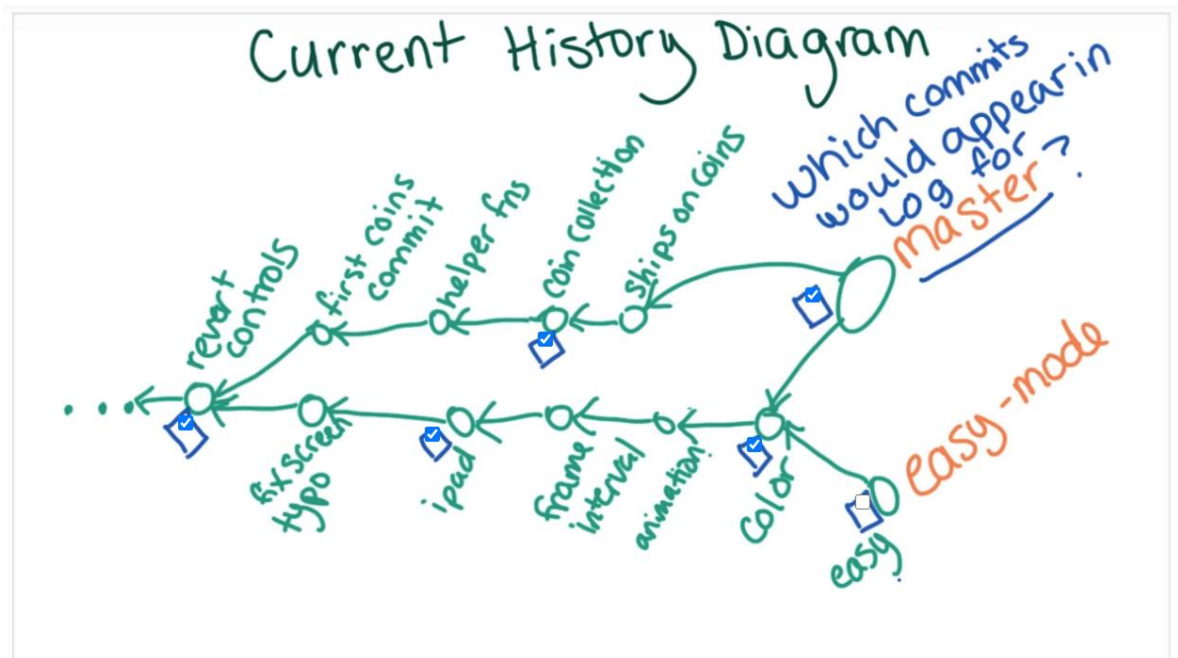 Current History Diagram
which commits
would appear in
log for
master?
revert
controls
first coins
commit
helper fns
coin collection
ships on coins
...
fix screen
typo
ipad
frame
interval
animation!
color
easy-mode
easy